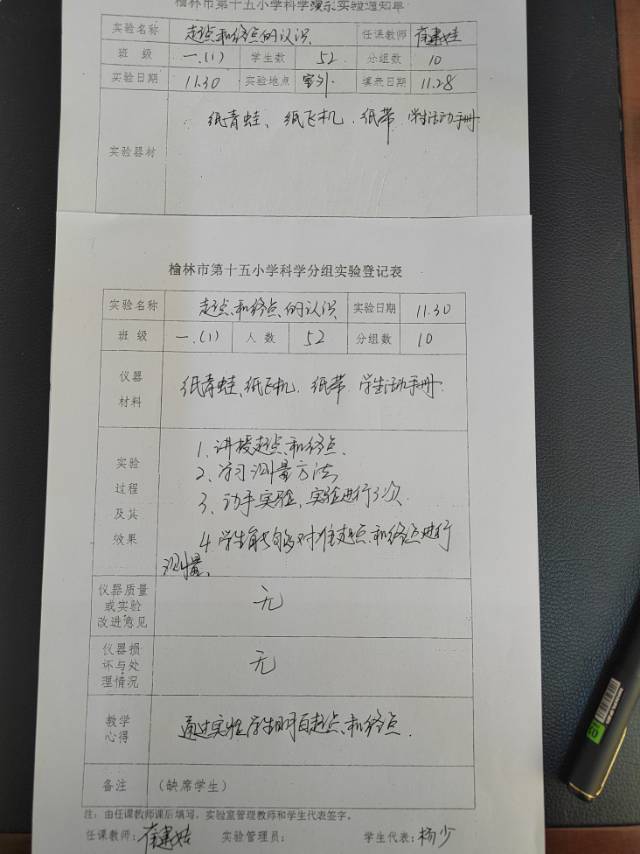 榆林市第十五小学科学演示实验通知单
实验名称 起点和终点的认识 任课教师
班 级 一.(1) 学生数 52 分组数 10
实验日期 11.30 实验地点 室外 填表日期 11.28
实验器材 纸青蛙、纸飞机、纸带、学生活动手册
榆林市第十五小学科学分组实验登记表
实验名称 起点和终点的认识 实验日期 11.30
班 级 一.(1) 人 数 52 分组数 10
仪器
材料
纸青蛙、纸飞机、纸带 学生活动手册
实验
过程
及其
效果
1、讲授起点和终点.
2、学习测量方法
3、动手实验、实验进行3次.
4 学生能够对准起点和终点进行
测量、
仪器质量
或实验
改进意见
无
仪器损
坏与处
理情况
无
教学
心得
通过实验学生明白起点和终点.
备注 (缺席学生)
注：由任课教师课后填写，实验室管理教师和学生代表签字。
任课教师： 实验管理员： 学生代表：杨少